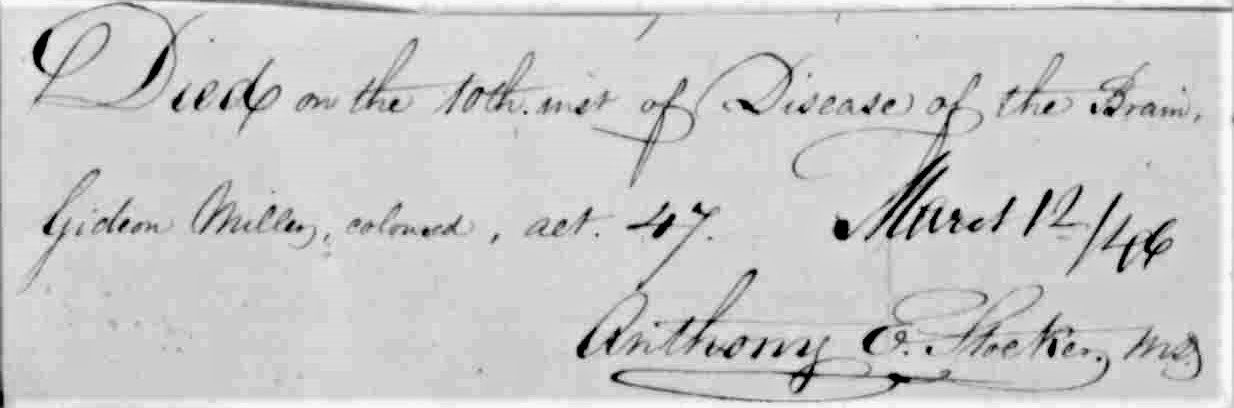 Died on the 10th. inst of Disease of the Brain,
Gideon Miller, coloured, aet. 47. March 12/46
Anthony E. Stocker, MD